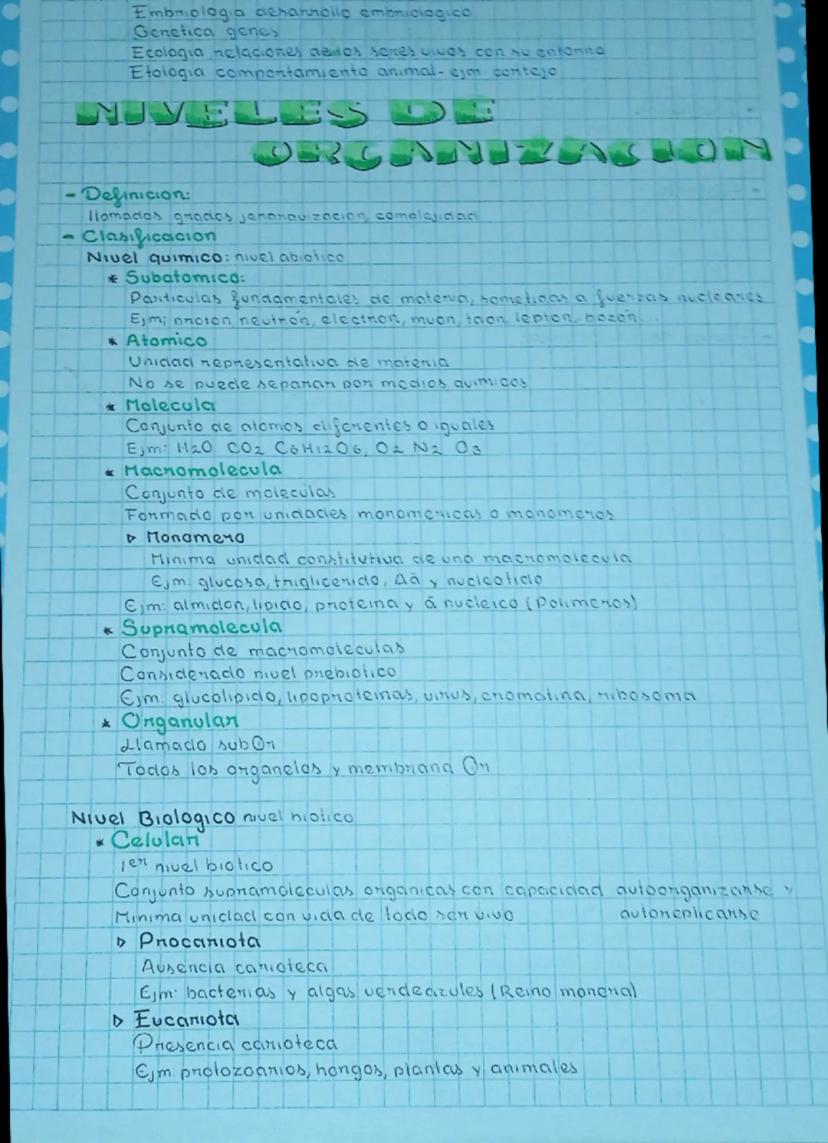 Embriologia desarrollo embriologico
Genetica genes
Ecologia relaciones de los seres vivos con su entorno
Etologia comportamiento animal - ejm cortejo
NIVELES DE
ORGANIZACION
- Definicion:
llamados grados jerarquizacion, complejidad
- Clasificacion
Nivel quimico: nivel abiotico
* Subatomico:
Particulas fundamentales de materia, sometidas a fuerzas nucleares
Ejm; proton, neutrón, electron, muon, taon, lepton, bozon...
* Atomico
Unidad representativa de materia
No se puede separar por medios quimicos
* Molecula
Conjunto de atomos diferentes o iguales
Ejm: H2O CO2 C6H12O6, O2 N2 O3
* Macromolecula
Conjunto de moleculas
Formado por unidades monomericas o monomeros
▷ Monomero
Minima unidad constitutiva de una macromolecula
Ejm: glucosa, triglicerido, Aā y nucleotido
Ejm: almidon, lipido, proteina y ā nucleico (Polimeros)
* Supramolecula
Conjunto de macromoleculas
Considerado nivel prebiotico
Ejm: glucolipido, lipoproteinas, virus, cromatina, ribosoma
* Organular
Llamado subOr
Todos los organelos y membrana Or
Nivel Biologico nivel biotico
* Celular
1er nivel biotico
Conjunto supramoleculas organicas con capacidad autoorganizarse y
Minima unidad con vida de todo ser vivo autoreplicarse
▷ Procariota
Ausencia carioteca
Ejm: bacterias y algas verdeazules (Reino moneral)
▷ Eucariota
Presencia carioteca
Ejm: protozoarios, hongos, plantas y animales